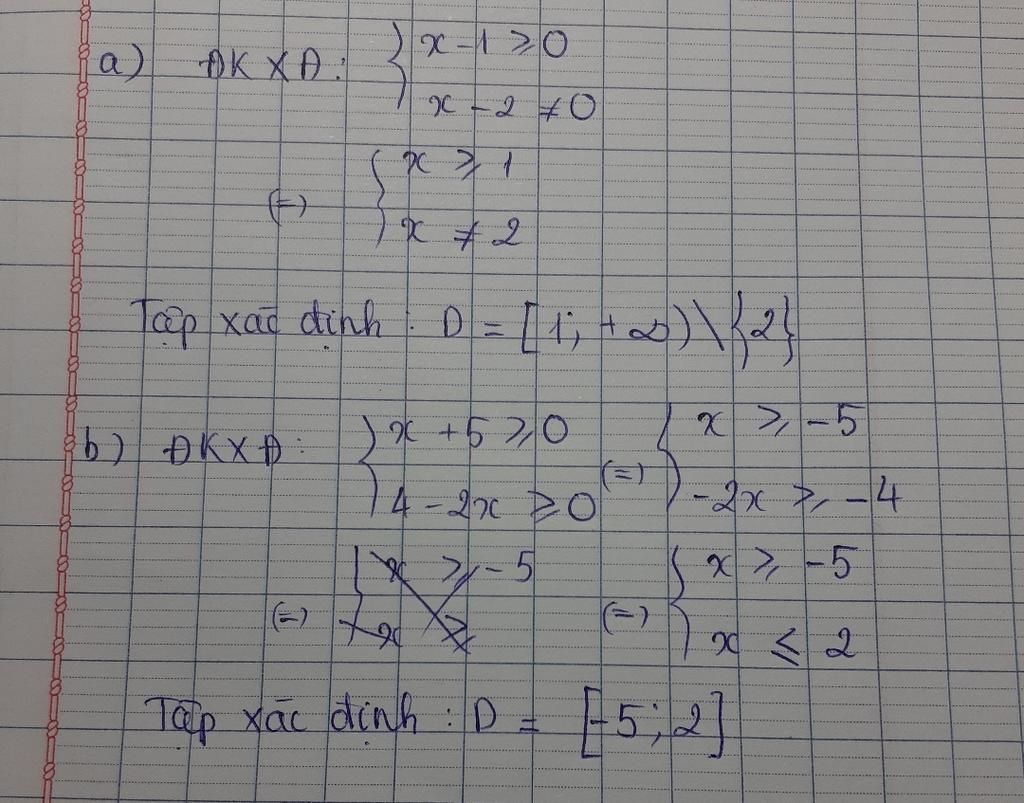 a) ĐKXĐ: { x - 1 ≥ 0
x - 2 ≠ 0
(=) { x ≥ 1
x ≠ 2
Tập xác định : D = [1; +∞) \ {2}
b) ĐKXĐ: { x + 5 ≥ 0 (=) { x ≥ -5
4 - 2x ≥ 0 -2x ≥ -4
(=) { x ≥ -5 (=) { x ≥ -5
-x ≥ x ≤ 2
Tập xác định : D = [-5; 2]